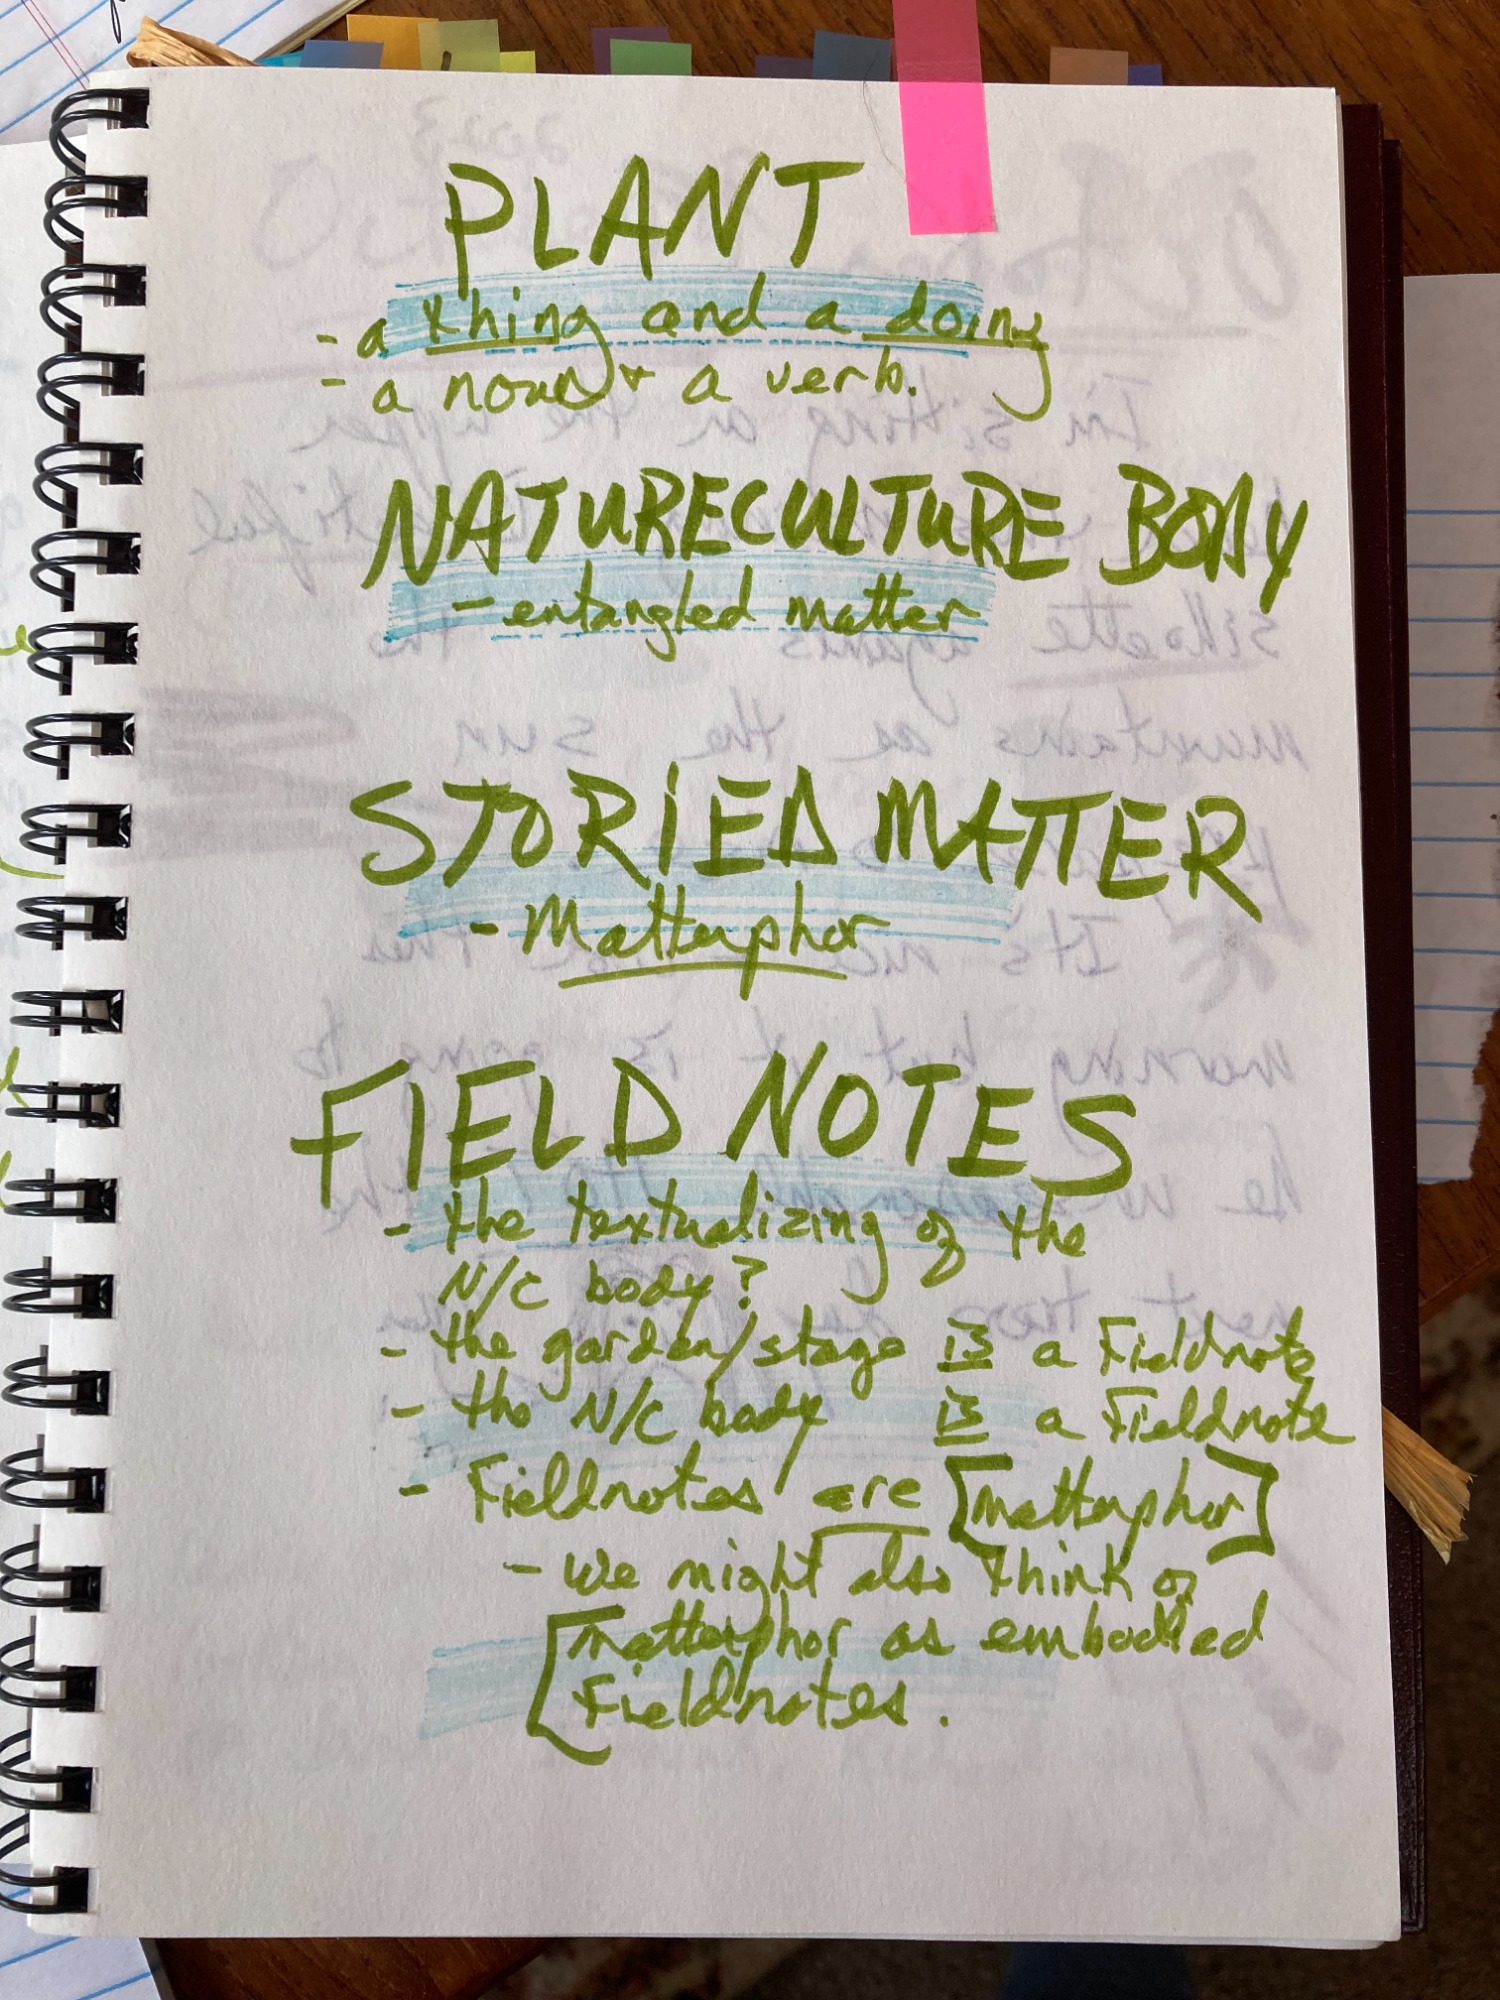 PLANT
- a thing and a doing
- a noun + a verb.
NATURECULTURE BODY
- entangled matter
STORIED MATTER
- Matterphor
FIELD NOTES
- the textualizing of the
N/C body?
- the garden/stage is a Fieldnote
- the N/C body is a Fieldnote
- Fieldnotes are [matterphor]
- we might also think of
[matterphor as embodied
Fieldnotes.